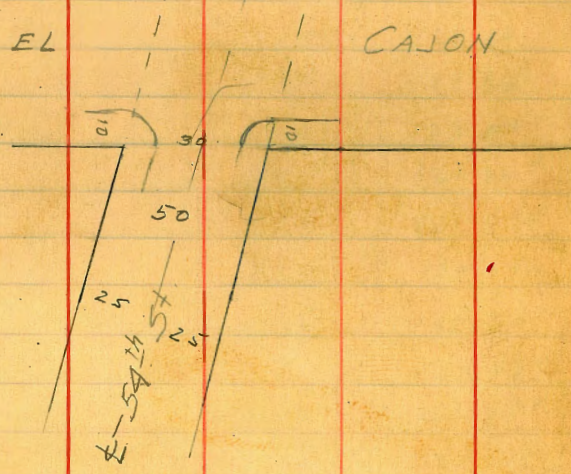 EL CAJON
10 30 10
50
25
25
℄-54th St